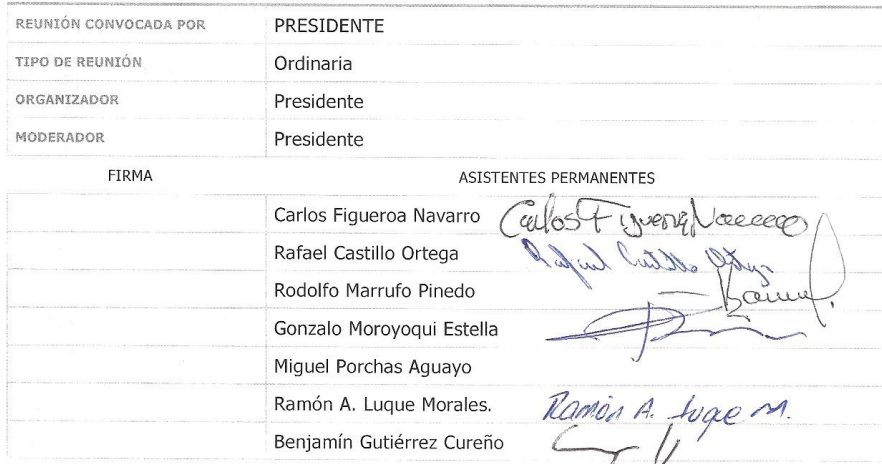 REUNIÓN CONVOCADA POR PRESIDENTE
TIPO DE REUNIÓN Ordinaria
ORGANIZADOR Presidente
MODERADOR Presidente
FIRMA ASISTENTES PERMANENTES
Carlos Figueroa Navarro Carlos Figueroa Navarro
Rafael Castillo Ortega Rafael Castillo Ortega
Rodolfo Marrufo Pinedo
Gonzalo Moroyoqui Estella
Miguel Porchas Aguayo
Ramón A. Luque Morales. Ramón A. Luque M.
Benjamín Gutiérrez Cureño